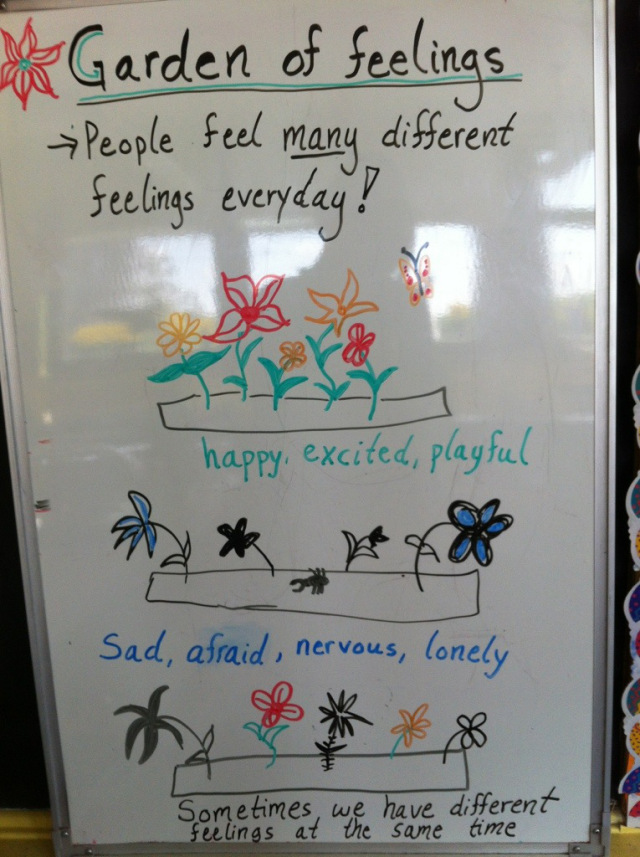 Garden of feelings
→People feel many different
feelings everyday!
happy, excited, playful
Sad, afraid, nervous, lonely
Sometimes we have different
feelings at the same time